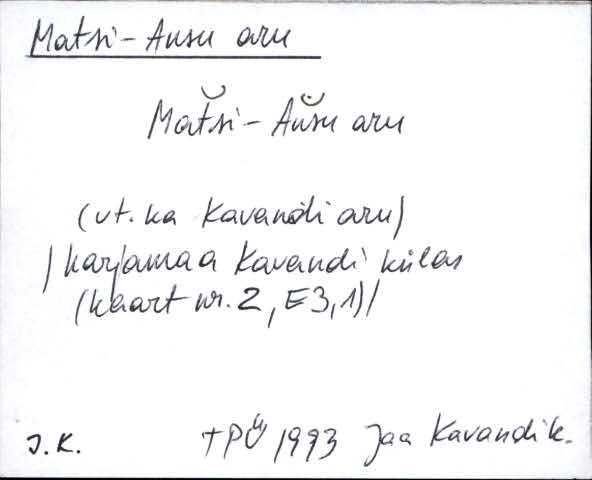 Matsi-Ausu aru
Matsi-Ausu aru
(vt. ka Kavandi aru)
/karjamaa Kavandi külas
(kaart nr. 2, E3,1)/
J. K. TPÜ 1993 Jaa Kavandi k.